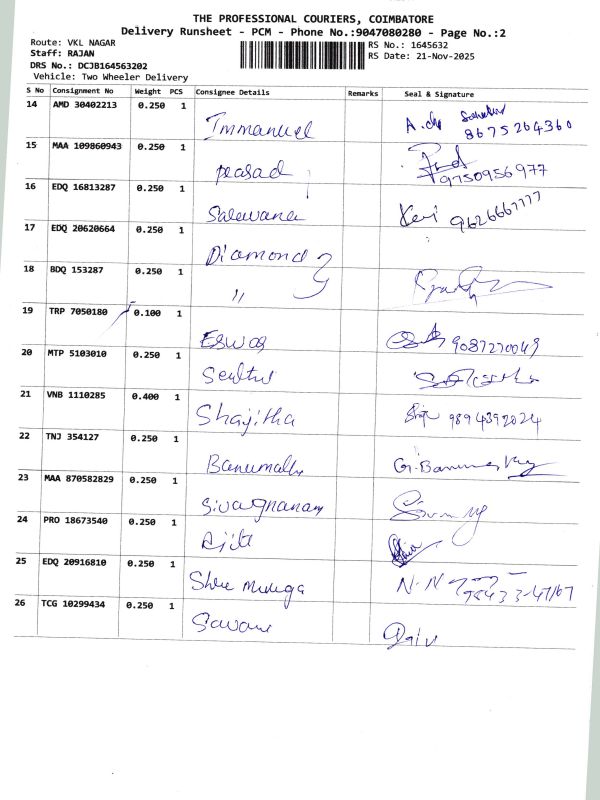 THE PROFESSIONAL COURIERS, COIMBATORE
Delivery Runsheet - PCM - Phone No.:9047080280 - Page No.:2
Route: VKL NAGAR
RS No.: 1645632
Staff: RAJAN
RS Date: 21-Nov-2025
DRS No.: DCJB164563202
Vehicle: Two Wheeler Delivery
S No Consignment No Weight PCS Consignee Details Remarks Seal & Signature
14 AMD 30402213 0.250 1 Immanuel 8675264360
15 MAA 109860943 0.250 1 prasad 9750956977
16 EDQ 16813287 0.250 1 Kavi 9626667777
17 EDQ 20620664 0.250 1 Diamond
18 BDQ 153287 0.250 1 "
19 TRP 7050180 0.100 1 Eswar 9087270049
20 MTP 5103010 0.250 1
21 VNB 1110285 0.400 1 Shajitha 9894392024
22 TNJ 354127 0.250 1 Banumathy G. Banumathy
23 MAA 870582829 0.250 1 Sivagnanam
24 PRO 18673540 0.250 1
25 EDQ 20916810 0.250 1 Shree Muruga N.N
26 TCG 10299434 0.250 1